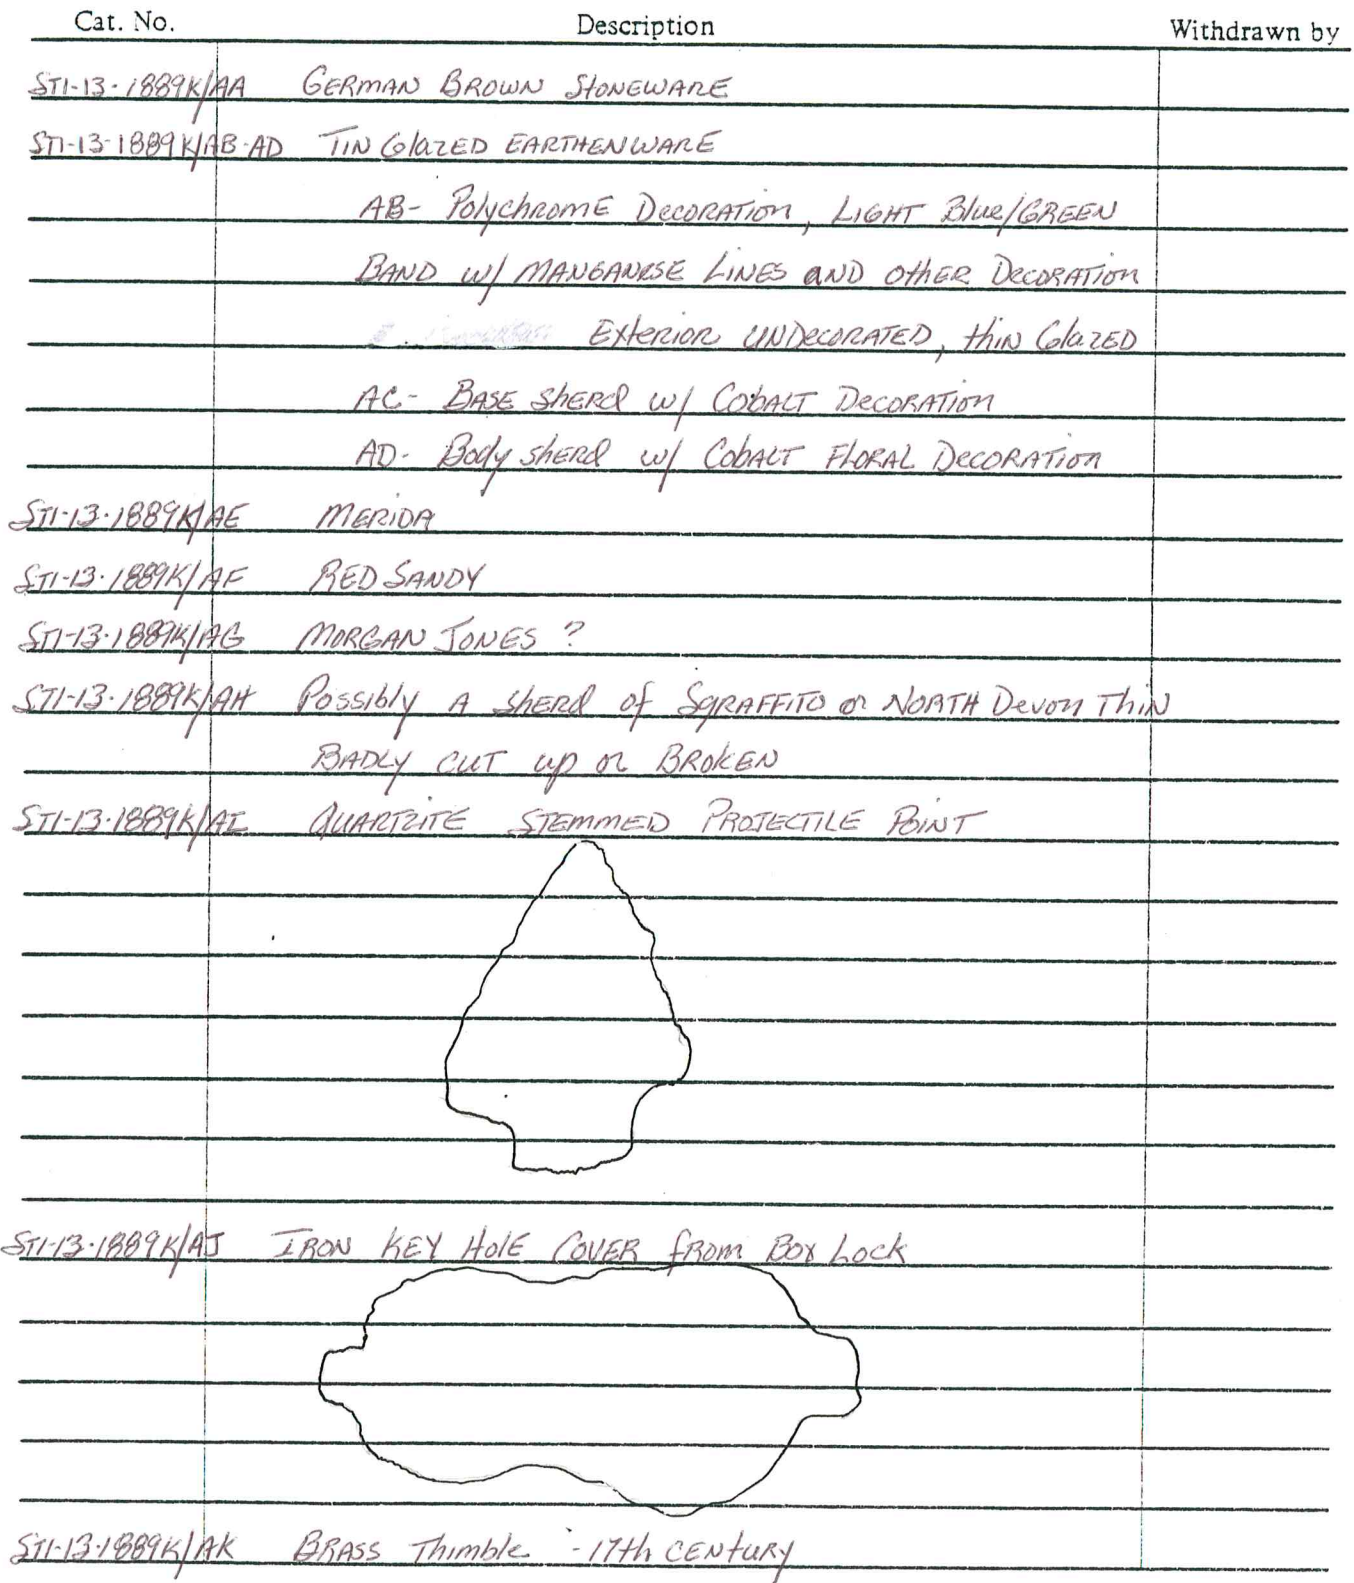 Cat. No. Description Withdrawn by
ST1-13-1889K/AA GERMAN BROWN STONEWARE
ST1-13-1889K/AB-AD TIN GlazED EARTHENWARE
AB- PolychromE DecoRATion, LIGHT Blue/GREEN
BAND w/ MANGANESE LINES aND OtHER DecoRATion
ExtERIOR UNDecoRATED, thin GlazED
AC- BASE SHERd w/ CobALT DecoRATion
AD- Body SHERd w/ CobALT FLORAL DecoRATion
ST1-13-1889K/AE MERIDA
ST1-13-1889K/AF RED SANDY
ST1-13-1889K/AG MORGAN JONES ?
ST1-13-1889K/AH Possibly A SHERd of SGRAFFITO or NORTH Devon Thin
BADLY CUT up or BROKEN
ST1-13-1889K/AI QUARTZITE STEMMED PROJECTILE POINT
ST1-13-1889K/AJ IRON KEY HolE COVER from Box Lock
ST1-13-1889K/AK BRASS Thimble - 17th CENtURY